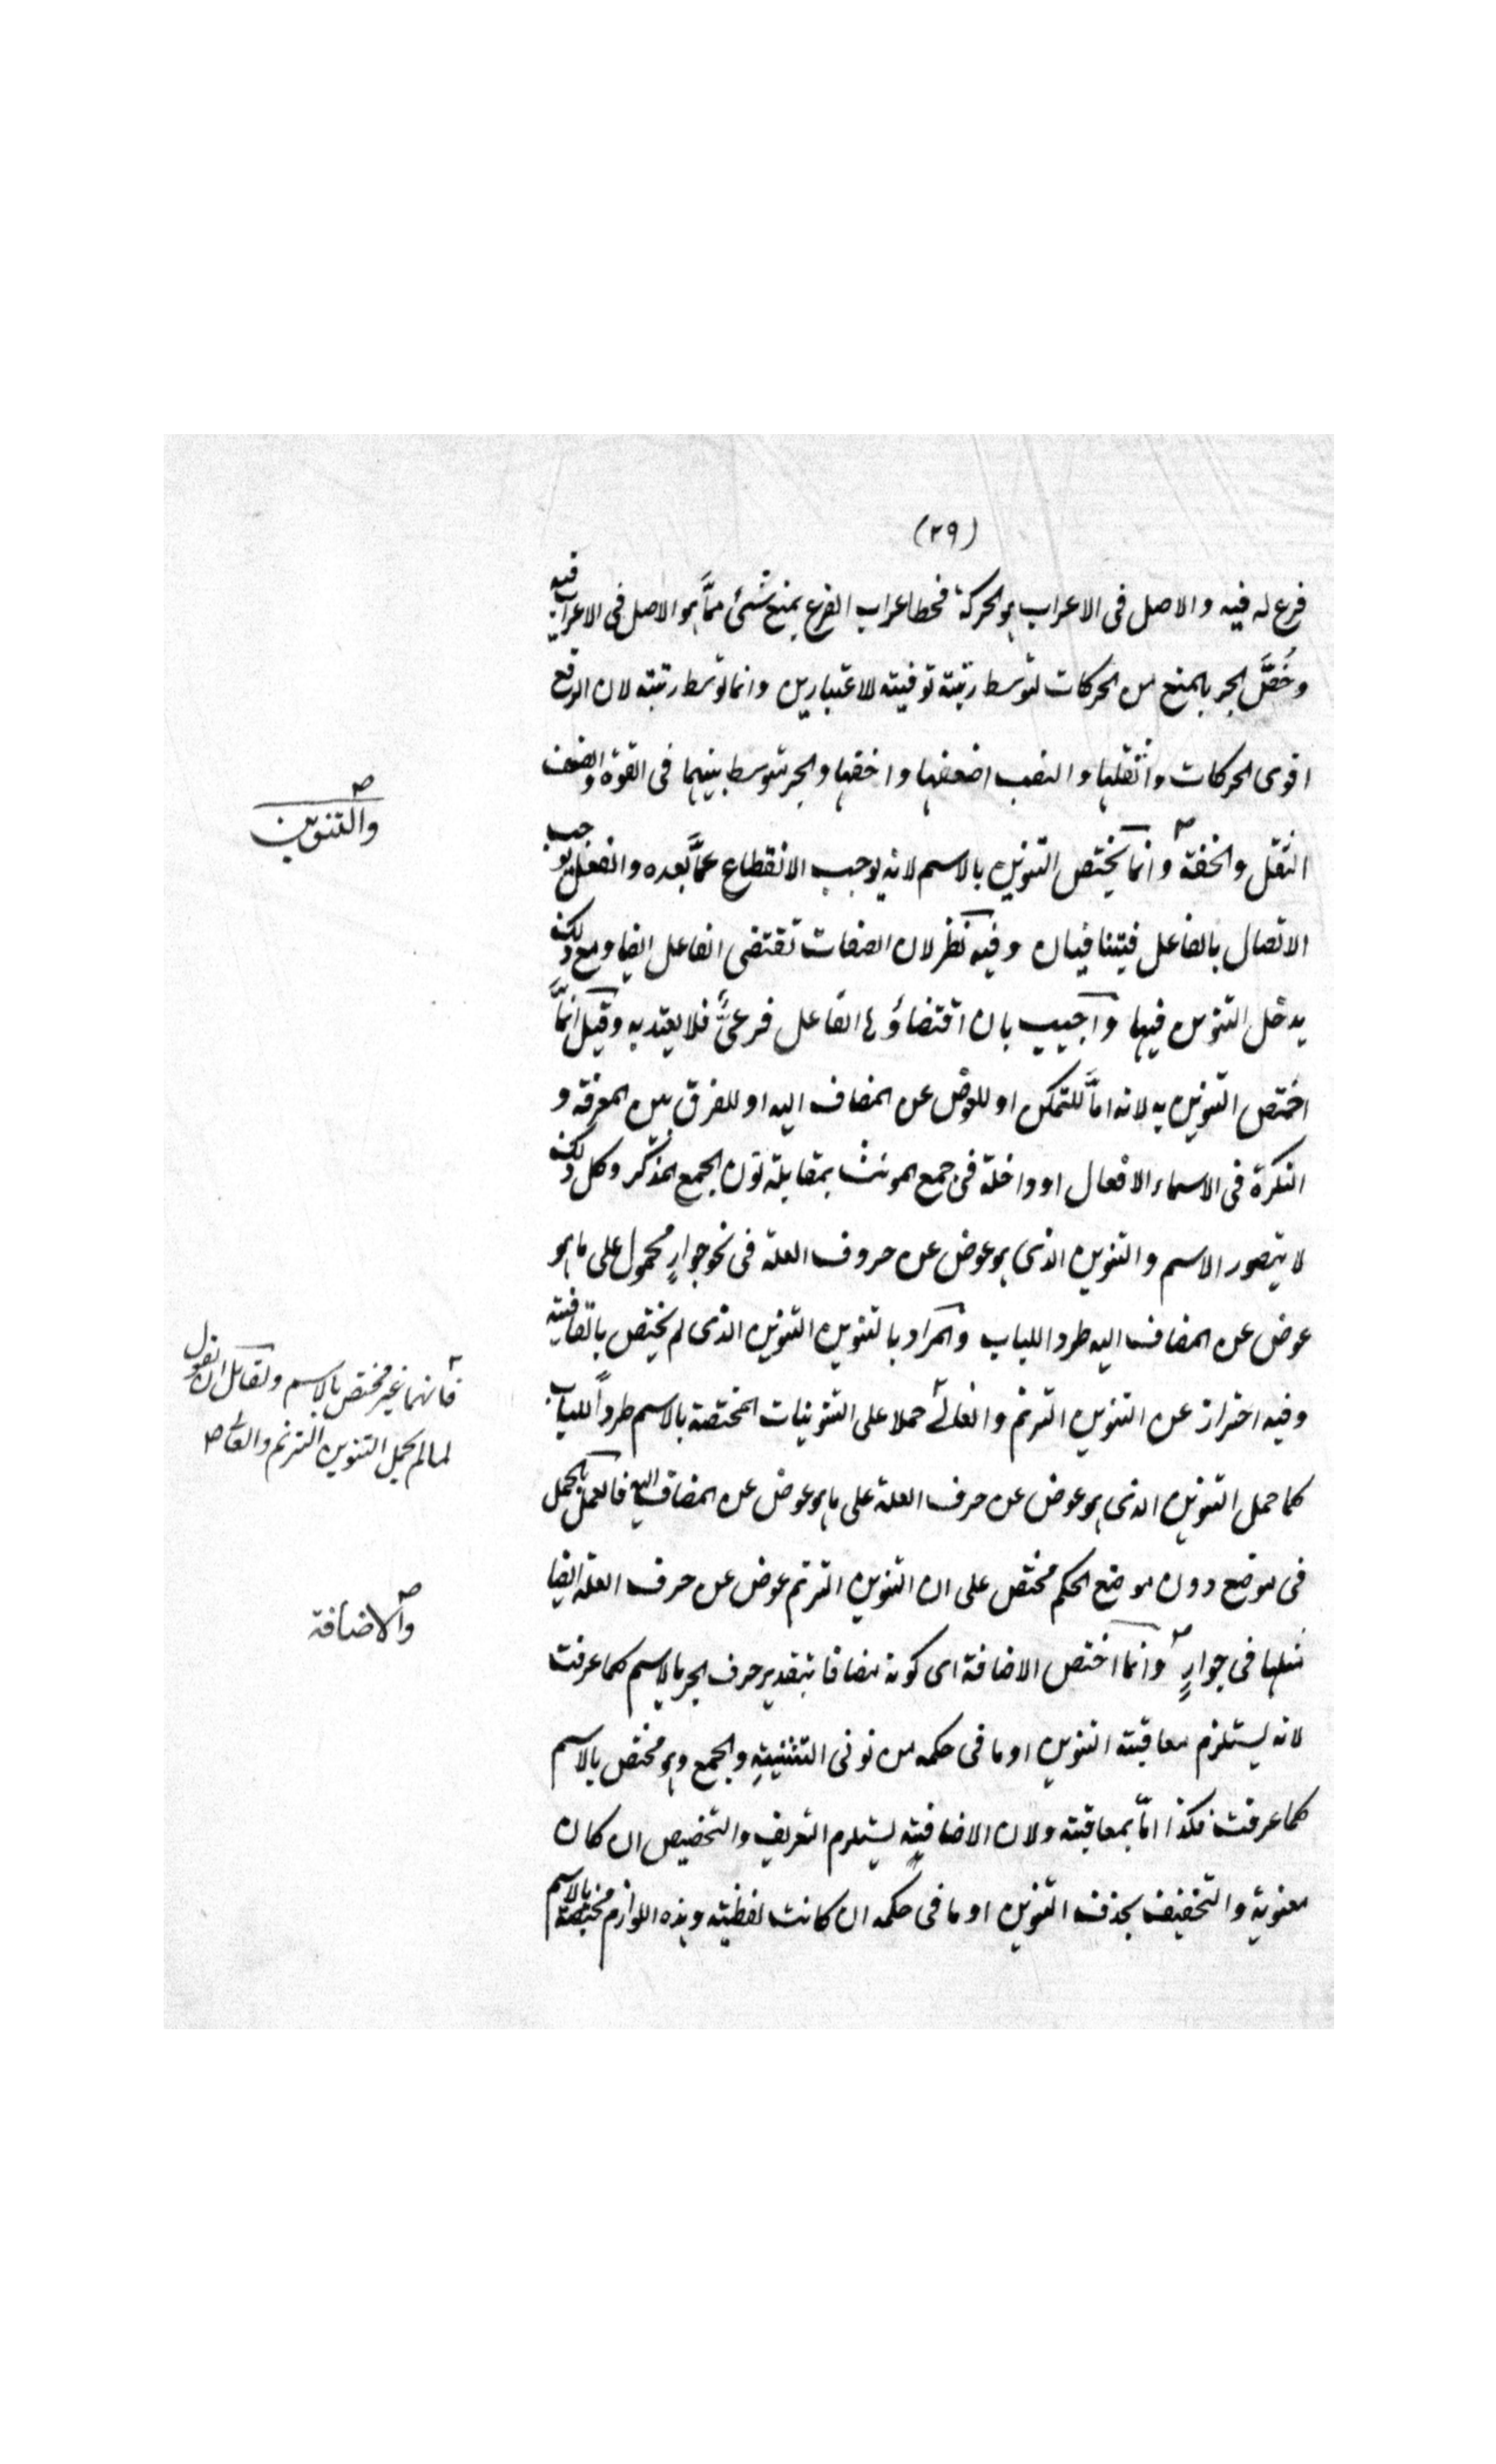 (٢٩)
فرع له فيه والاصل فى الاعراب هو الحركة فحط اعراب الفرع بمنع شئ ممّا هو الاصل فى الاعراب فيه
وخُصَّ الجر بالمنع من الحركات لتوسط رتبته توفيته للاعتبارين وانما توسط رتبته لان الرفع
اقوى الحركات واثقلها والنصب اضعفها واخفها والجر متوسط بينهما فى القوة والضعف
والتنوين
الثقل والخفة وانما يختص التنوين بالاسم لانه يوجب الانقطاع عمّا بعده والفعل يوجب
الاتصال بالفاعل فيتنافيان وفيه نظر لان الصفات تقتضى الفاعل ايضا ومع ذلك
يدخل التنوين فيها واجيب بان اقتضاؤها الفاعل فرعىٌّ فلا يعتد به وقيل انمّا
اختص التنوين به لانه امّا للتمكن او للعوض عن المضاف اليه او للفرق بين المعرفة و
النكرة فى الاسماء الافعال او داخلة فى جمع المونث بمقابلة نون الجمع المذكر وكل ذلك
لا يتصور الاسم والتنوين الذى هو عوض عن حروف العلة فى نحو جوارٍ محمول على ما هو
عوض عن المضاف اليه طرد اللباب والمراد بالتنوين التنوين الذى لم يختص بالقافية
فانهما غير مختص بالاسم ولقائل ان يقول
لما لم يحمل التنوين الترنم والغالى
وفيه احتراز عن التنوين الترنم والغالى حملا على التنوينات المختصة بالاسم طرداً للباب
كما حمل التنوين الذى هو عوض عن حرف العلة على ما هو عوض عن المضاف اليه فالعمل بالحمل
فى موضع دون موضع الحكم مختص على ان التنوين الترنم عوض عن حرف العلة ايضا
والاضافة
مثلها فى جوارٍ وانما اختص الاضافة اى كونه مضافا بتقدير حرف الجر بالاسم كما عرفت
لانه يستلزم معاقبته التنوين او ما فى حكمه من نونى التثنيةِ والجمع وهو مختص بالاسم
كما عرفت فكذا امّا بمعاقبته ولان الاضافية يستلزم التعريف والتخصيص ان كان
معنوية والتخفيف بحذف التنوين او ما فى حكمه ان كانت لفظيته وهذه اللوازم مختصة بالاسم